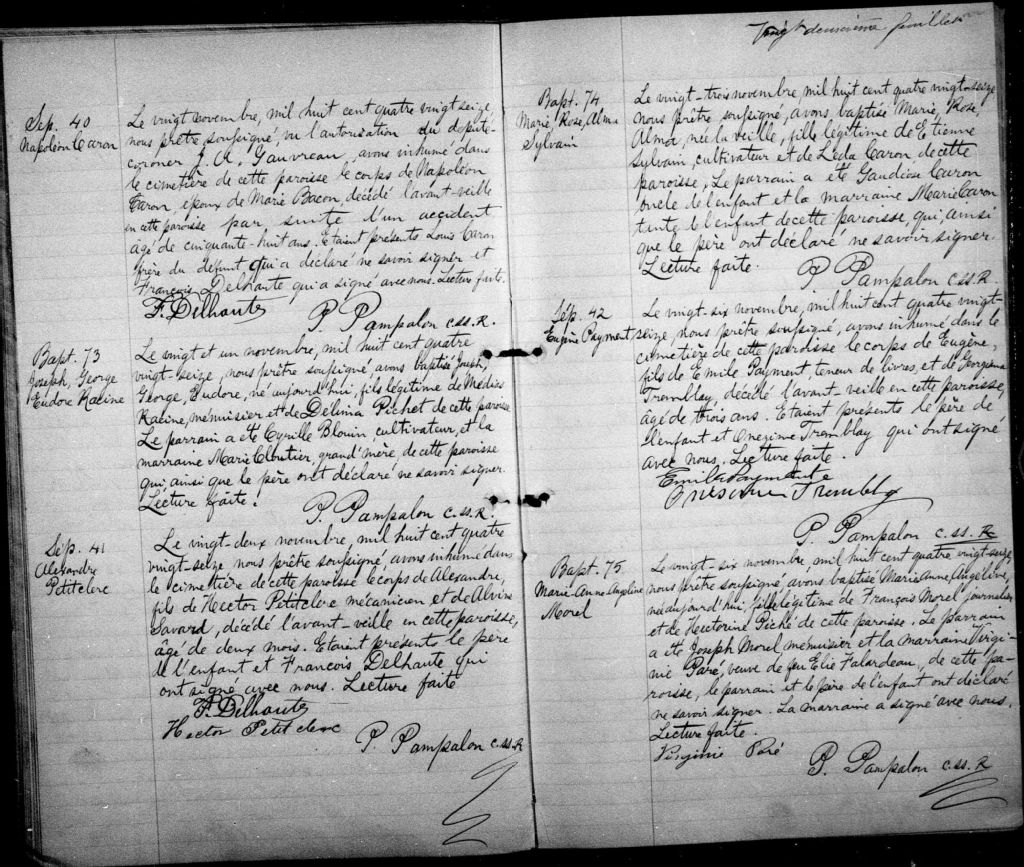 Sép. 40
Napoléon Caron
Le vingt novembre, mil huit cent quatre vingt seize,
nous prêtre soussigné, vu l'autorisation du député-
coroner J. A. Gauvreau, avons inhumé dans
le cimetière de cette paroisse le corps de Napoléon
Caron, époux de Marie Bacon, décédé l'avant-veille
en cette paroisse par suite d'un accident
âgé de cinquante-huit ans. Etaient présents Louis Caron
frère du défunt qui a déclaré ne savoir signer et
François Delhaute qui a signé avec nous. Lecture faite.
F. Delhaute
P. Pampalon C.SS.R.
Bapt. 73
Joseph, George
Eudore Racine
Le vingt et un novembre, mil huit cent quatre
vingt-seize, nous prêtre soussigné avons baptisé Joseph,
George, Eudore, né aujourd'hui, fils légitime de Médéric
Racine, menuisier et de Delima Pichet de cette paroisse.
Le parrain a été Cyrille Blouin, cultivateur, et la
marraine Marie Cloutier grand'mère, de cette paroisse
qui, ainsi que le père ont déclaré ne savoir signer.
Lecture faite.
P. Pampalon C.SS.R.
Sép. 41
Alexandre
Petitclerc
Le vingt-deux novembre, mil huit cent quatre
vingt-seize nous prêtre soussigné, avons inhumé dans
le cimetière de cette paroisse le corps de Alexandre,
fils de Hector Petitclerc mécanicien et de Alvine
Savard, décédé l'avant-veille en cette paroisse,
âgé de deux mois. Etaient présents le père
de l'enfant et François Delhaute qui
ont signé avec nous. Lecture faite
F. Delhaute
Hector Petitclerc
P. Pampalon C.SS.R
Vingt deuxième feuillet
Bapt. 74
Marie, Rose, Alma
Sylvain
Le vingt-trois novembre, mil huit cent quatre vingt-seize
nous prêtre soussigné, avons baptisé Marie, Rose
Alma, née la veille, fille légitime de Etienne
Sylvain, cultivateur et de Léda Caron, de cette
paroisse. Le parrain a été Gaudiose Caron
oncle de l'enfant et la marraine Marie Caron
tante de l'enfant de cette paroisse, qui, ainsi
que le père ont déclaré ne savoir signer.
Lecture faite.
P. Pampalon C.SS.R
Sép. 42
Eugène Payment
Le vingt-six novembre, mil huit cent quatre vingt-
seize, nous prêtre soussigné, avons inhumé dans le
cimetière de cette paroisse le corps de Eugène,
fils de Emile Payment teneur de livres, et de Georgiana
Tremblay, décédé l'avant-veille en cette paroisse,
âgé de trois ans. Etaient présents le père de
l'enfant et Onezime Tremblay qui ont signé
avec nous. Lecture faite.
Emile Payment
Tremblay
P. Pampalon C.SS.R
Bapt. 75
Marie-Anne Angeline
Morel
Le vingt-six novembre, mil huit cent quatre vingt-seize,
nous prêtre soussigné, avons baptisé Marie Anne, Angéline,
née aujourd'hui, fille légitime de François Morel journalier
et de Hectorine Piché de cette paroisse. Le parrain
a été Joseph Morel, menuisier et la marraine Virgi-
nie Paré, veuve de feu Elie Falardeau, de cette pa-
roisse, le parrain et le père de l'enfant ont déclaré
ne savoir signer. La marraine a signé avec nous.
Lecture faite.
Virginie Paré
P. Pampalon C.SS.R